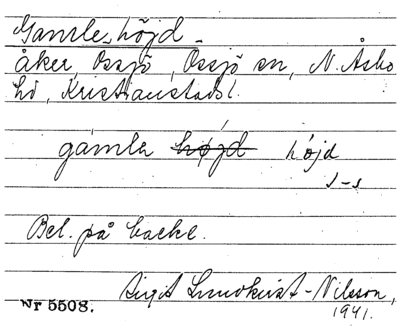 Gamle höjd
åker, Össjö, Össjö sn, N. Åsbo
hd, Kristianstads l.
gámla höjd
s-s
Bel. på backe.
Birgit Lundkvist-Nilsson,
1941.
Nr 5508.